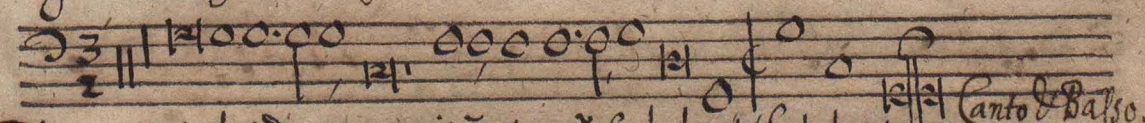 3
2
Canto & Basso